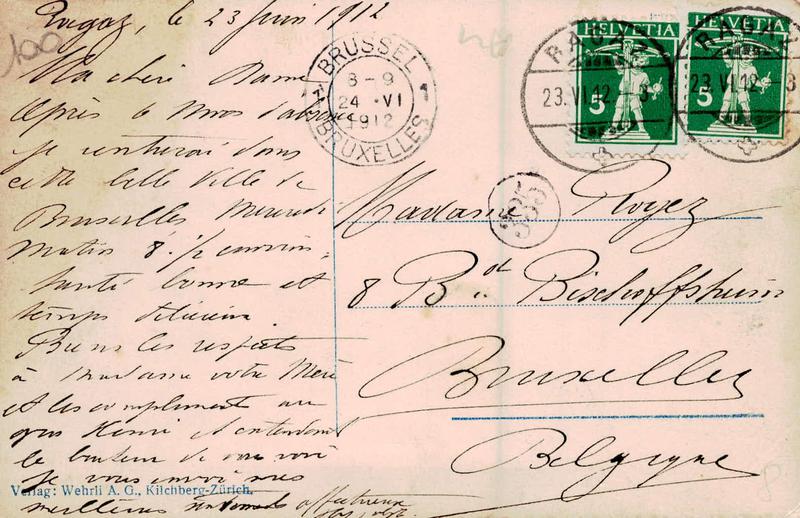 Ragaz, le 23 Juin 1912
Ma chère Dame
Après 6 mois d'absence
je rentrerai dans
cette belle ville de
Bruxelles Mercredi
Matin 8. 1/2 environ
Santé bonne et
temps délicieux
Bien les respects
à Madame votre Mère
et les compliments au
gros Henri et entendons
le bonheur de vous voir
je vous envoi mes
meilleures
affectueux
Verlag: Wehrli A. G., Kilchberg-Zürich.
100
BRUSSEL
8-9
24 VI
1912
BRUXELLES
HELVETIA
5
HELVETIA
5
RAGAZ
23.VI.12.-8
RAGAZ
23.VI.12.-8
335
Madame Royez
8 Bd. Bischoffsheim
Bruxelles
Belgique